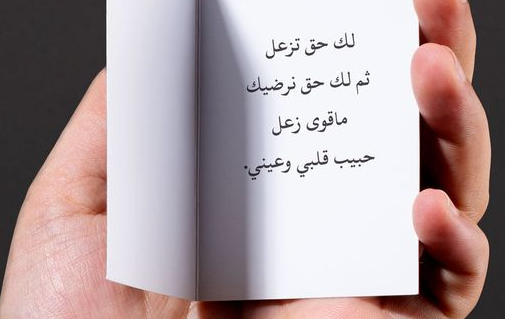 لك حق تزعل
ثم لك حق نرضيك
ماقوى زعل
حبيب قلبي وعيني.